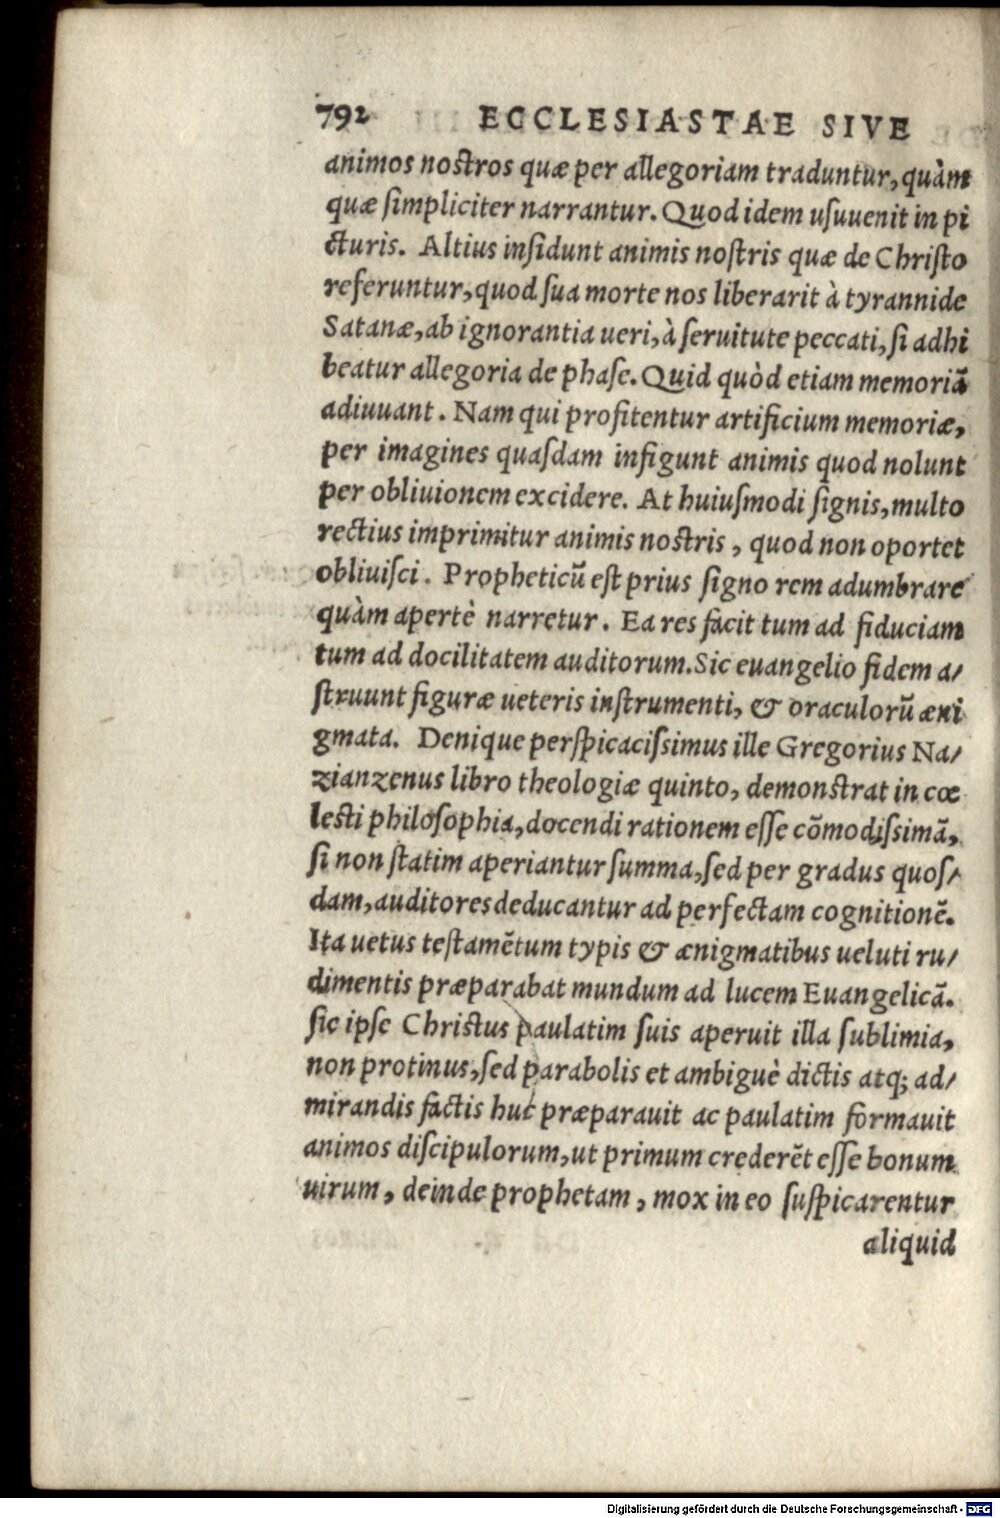 792 ECCLESIASTAE SIVE
animos nostros quæ per allegoriam traduntur, quàm
quæ simpliciter narrantur. Quod idem usuuenit in pi
cturis. Altius insidunt animis nostris quæ de Christo
referuntur, quod sua morte nos liberarit à tyrannide
Satanæ, ab ignorantia ueri, à seruitute peccati, si adhi
beatur allegoria de phase. Quid quòd etiam memoriã
adiuuant. Nam qui profitentur artificium memoriæ,
per imagines quasdam infigunt animis quod nolunt
per obliuionem excidere. At huiusmodi signis, multo
rectius imprimitur animis nostris, quod non oportet
obliuisci. Propheticũ est prius signo rem adumbrare
quàm apertè narretur. Ea res facit tum ad fiduciam
tum ad docilitatem auditorum. Sic euangelio fidem a/
struunt figuræ ueteris instrumenti, & oraculorũ æni
gmata. Denique perspicacissimus ille Gregorius Na/
zianzenus libro theologiæ quinto, demonstrat in cœ
lesti philosophia, docendi rationem esse cõmodissimã,
si non statim aperiantur summa, sed per gradus quos/
dam, auditores deducantur ad perfectam cognitionẽ.
Ita uetus testamẽtum typis & ænigmatibus ueluti ru/
dimentis præparabat mundum ad lucem Euangelicã.
sic ipse Christus paulatim suis aperuit illa sublimia,
non protinus, sed parabolis et ambiguè dictis atq; ad/
mirandis factis huc præparauit ac paulatim formauit
animos discipulorum, ut primum crederẽt esse bonum
uirum, deinde prophetam, mox in eo suspicarentur
aliquid
Digitalisierung gefördert durch die Deutsche Forschungsgemeinschaft - DFG